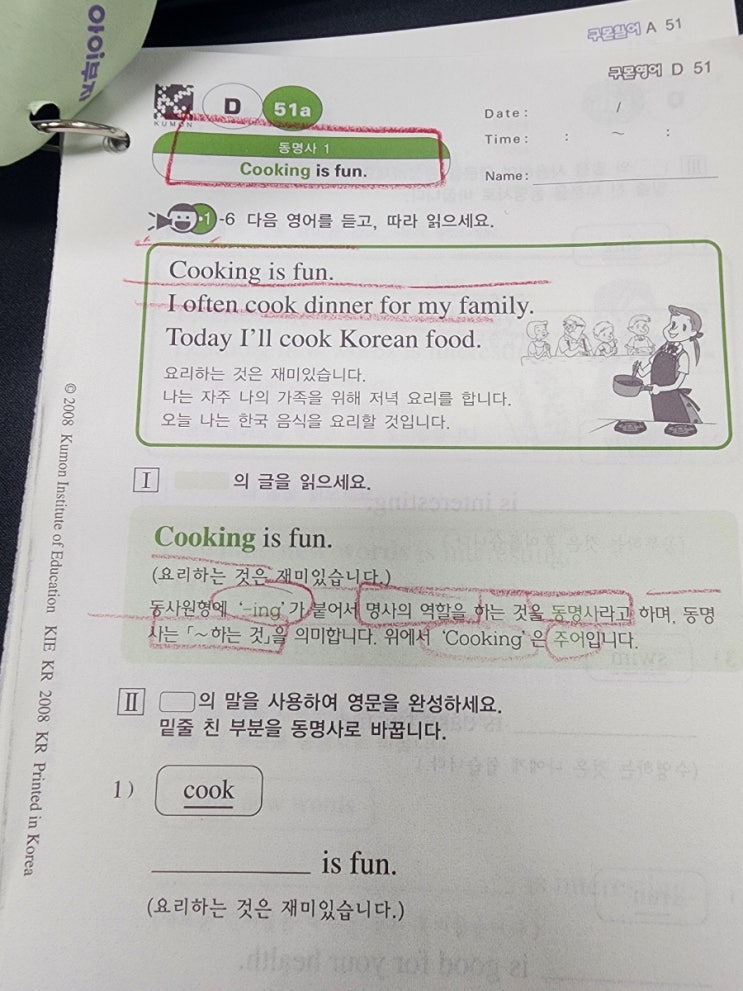 아이부자
구몬일어 A 51
구몬영어 D 51
KUMON
D 51a
동명사 1
Cooking is fun.
Date: /
Time: : ~ :
Name:
1-6 다음 영어를 듣고, 따라 읽으세요.
Cooking is fun.
I often cook dinner for my family.
Today I'll cook Korean food.
요리하는 것은 재미있습니다.
나는 자주 나의 가족을 위해 저녁 요리를 합니다.
오늘 나는 한국 음식을 요리할 것입니다.
I 의 글을 읽으세요.
Cooking is fun.
(요리하는 것은 재미있습니다.)
동사원형에 '-ing'가 붙어서 명사의 역할을 하는 것을 동명사라고 하며, 동명
사는 「~하는 것」을 의미합니다. 위에서 'Cooking'은 주어입니다.
II 의 말을 사용하여 영문을 완성하세요.
밑줄 친 부분을 동명사로 바꿉니다.
1) cook
is fun.
(요리하는 것은 재미있습니다.)
© 2008 Kumon Institute of Education KIE KR 2008 KR Printed in Korea
is interesting.
swim
(수영하는 것은 나에게 쉽습니다.)
is good for your health.